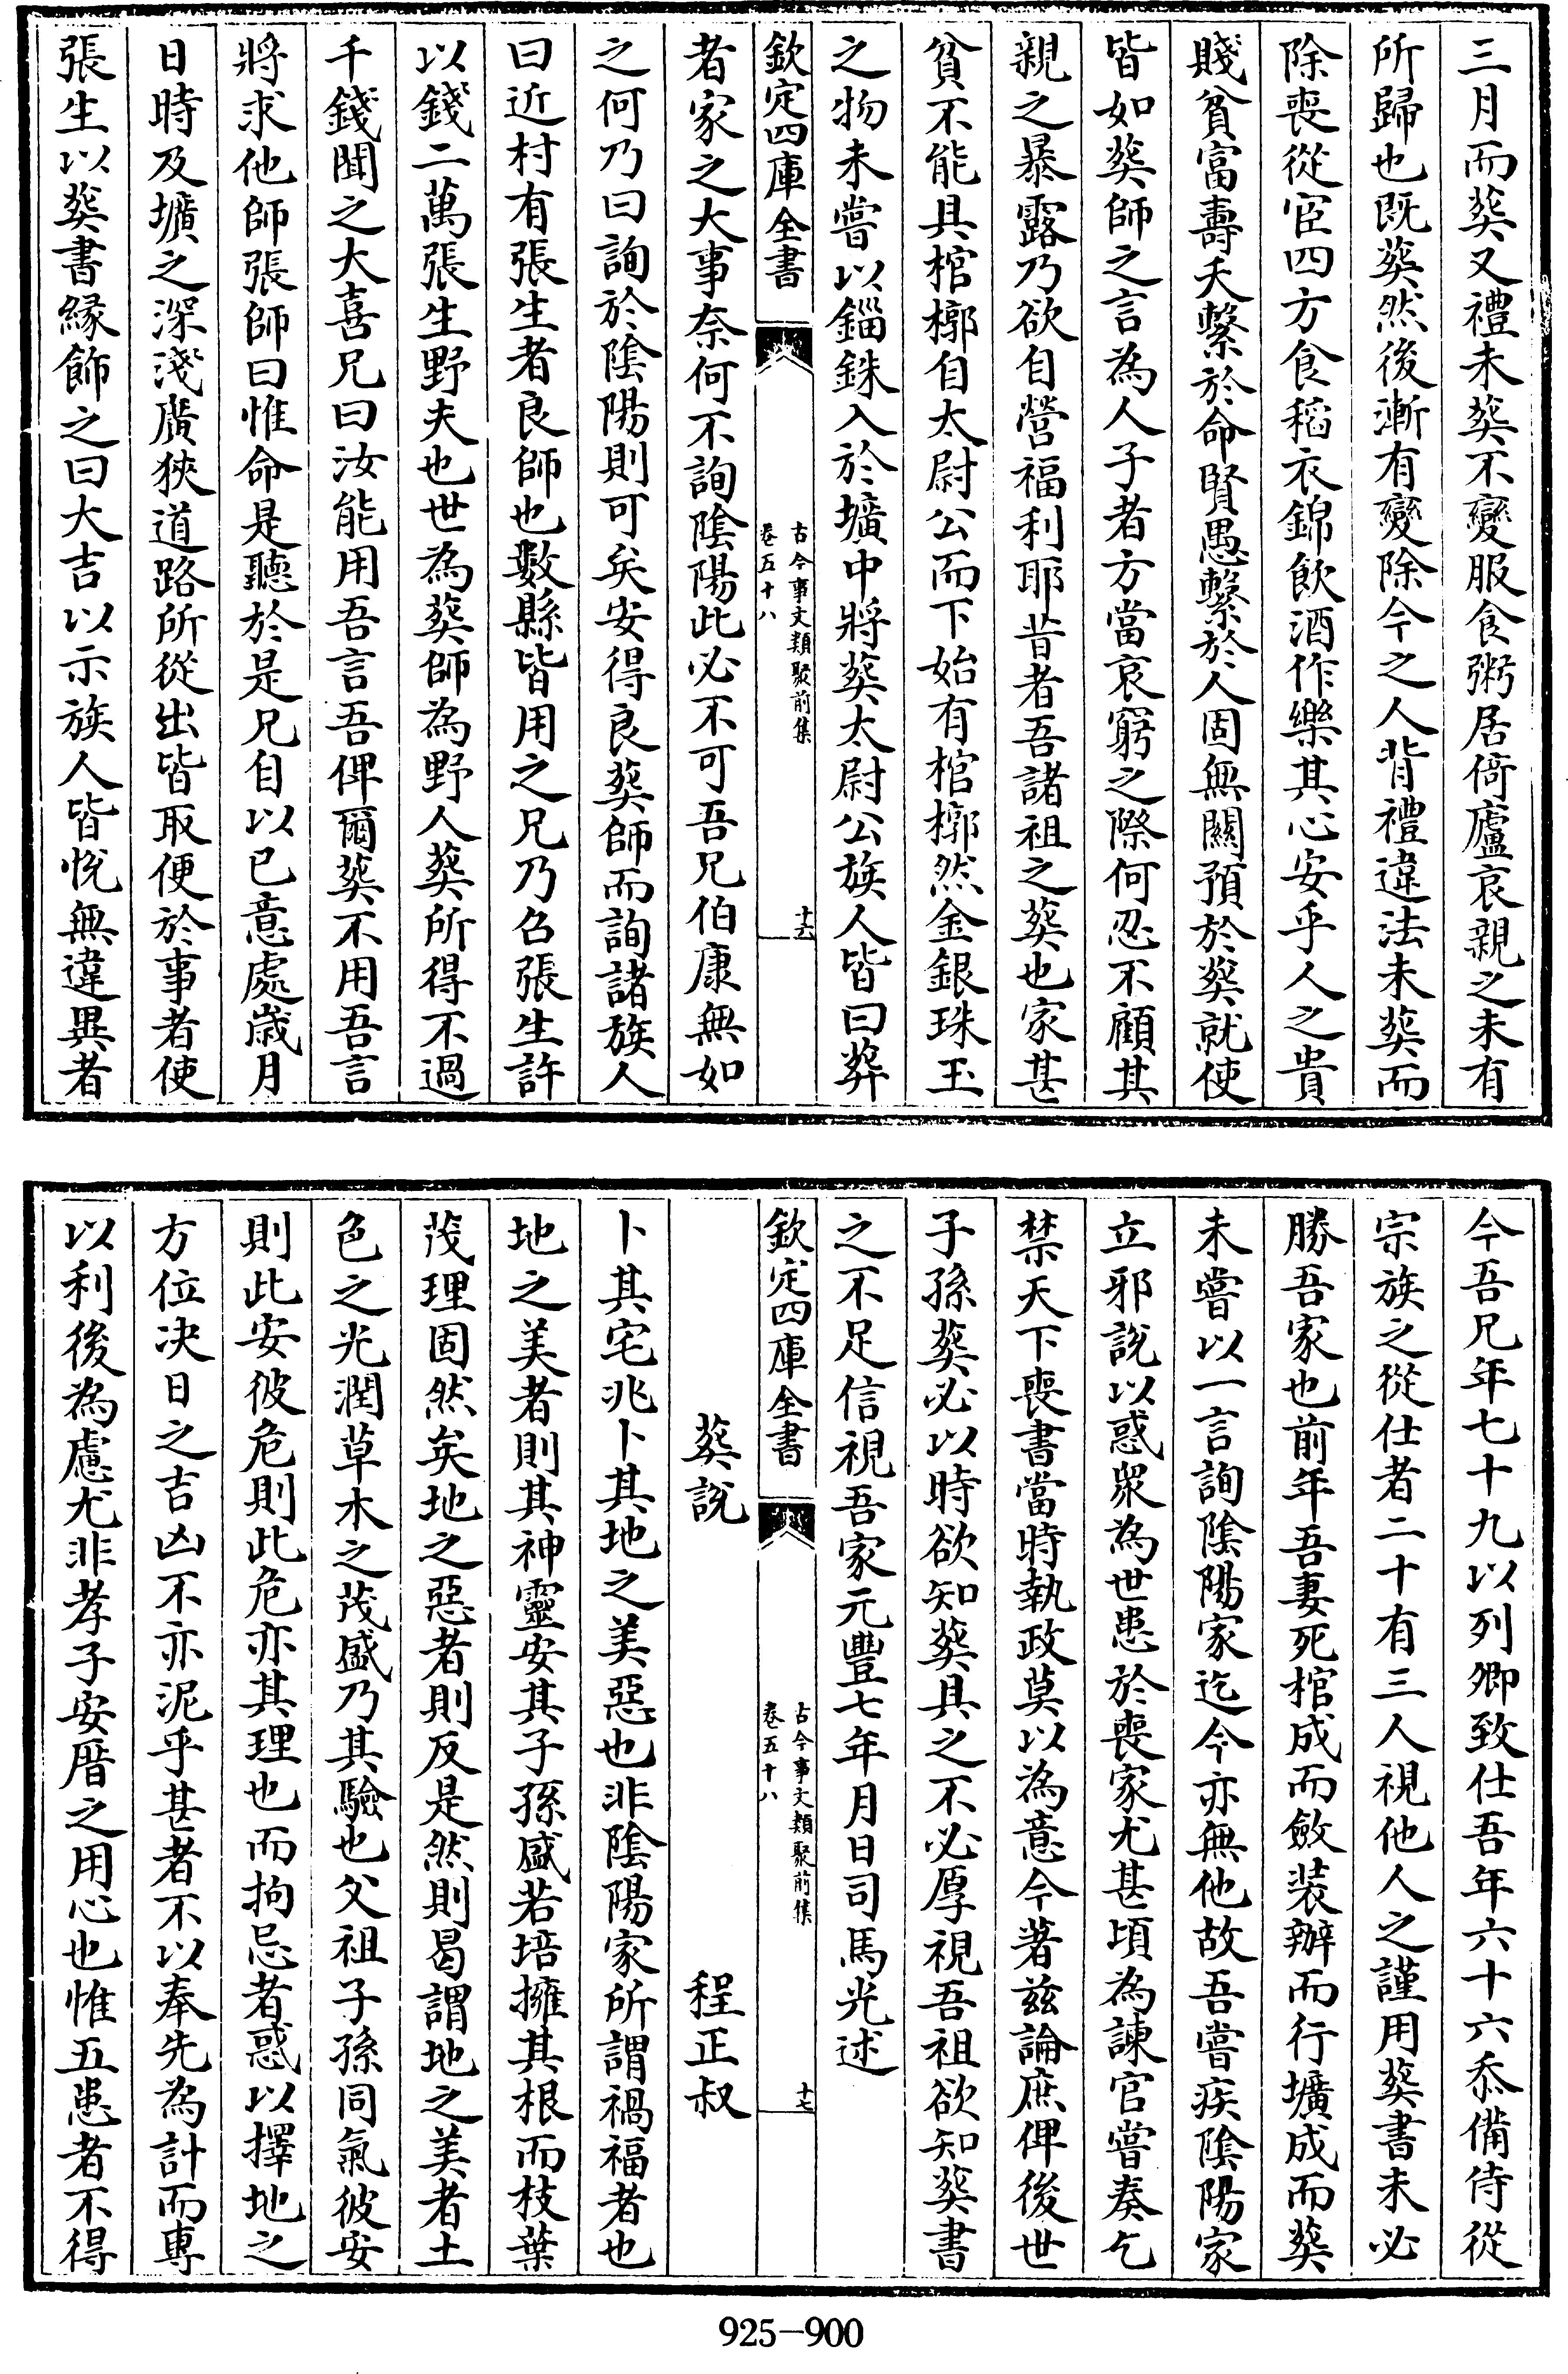 三月而葬又禮未葬不變服食粥居倚廬哀親之未有
所歸也既葬然後漸有變除今之人背禮違法未葬而
除喪從宦四方食稻衣錦飲酒作樂其心安乎人之貴
賤貧富壽夭繫於命賢愚繫於人固無關預於葬就使
皆如葬師之言為人子者方當哀窮之際何忍不顧其
親之暴露乃欲自營福利耶昔者吾諸祖之葬也家甚
貧不能具棺槨自太尉公而下始有棺槨然金銀珠玉
之物未嘗以錙銖入於壙中將葬太尉公族人皆曰葬
欽定四庫全書
古今事文類聚前集
卷五十八
十六
者家之大事奈何不詢陰陽此必不可吾兄伯康無如
之何乃曰詢於陰陽則可矣安得良葬師而詢諸族人
曰近村有張生者良師也數縣皆用之兄乃召張生許
以錢二萬張生野夫也世為葬師為野人葬所得不過
千錢聞之大喜兄曰汝能用吾言吾俾爾葬不用吾言
將求他師張師曰惟命是聽於是兄自以已意處歲月
日時及壙之深淺廣狹道路所從出皆取便於事者使
張生以葬書緣飾之曰大吉以示族人皆悅無違異者
今吾兄年七十九以列卿致仕吾年六十六忝備侍從
宗族之從仕者二十有三人視他人之謹用葬書未必
勝吾家也前年吾妻死棺成而斂装辦而行壙成而葬
未嘗以一言詢陰陽家迄今亦無他故吾嘗疾陰陽家
立邪說以惑眾為世患於喪家尤甚頃為諫官嘗奏乞
禁天下喪書當時執政莫以為意今著兹論庶俾後世
子孫葬必以時欲知葬具之不必厚視吾祖欲知葬書
之不足信視吾家元豐七年月日司馬光述
欽定四庫全書
古今事文類聚前集
卷五十八
十七
葬說　程正叔
卜其宅兆卜其地之美惡也非陰陽家所謂禍福者也
地之美者則其神靈安其子孫盛若培擁其根而枝葉
茂理固然矣地之惡者則反是然則曷謂地之美者土
色之光潤草木之茂盛乃其驗也父祖子孫同氣彼安
則此安彼危則此危亦其理也而拘忌者惑以擇地之
方位决日之吉凶不亦泥乎甚者不以奉先為計而專
以利後為慮尤非孝子安厝之用心也惟五患者不得
925-900